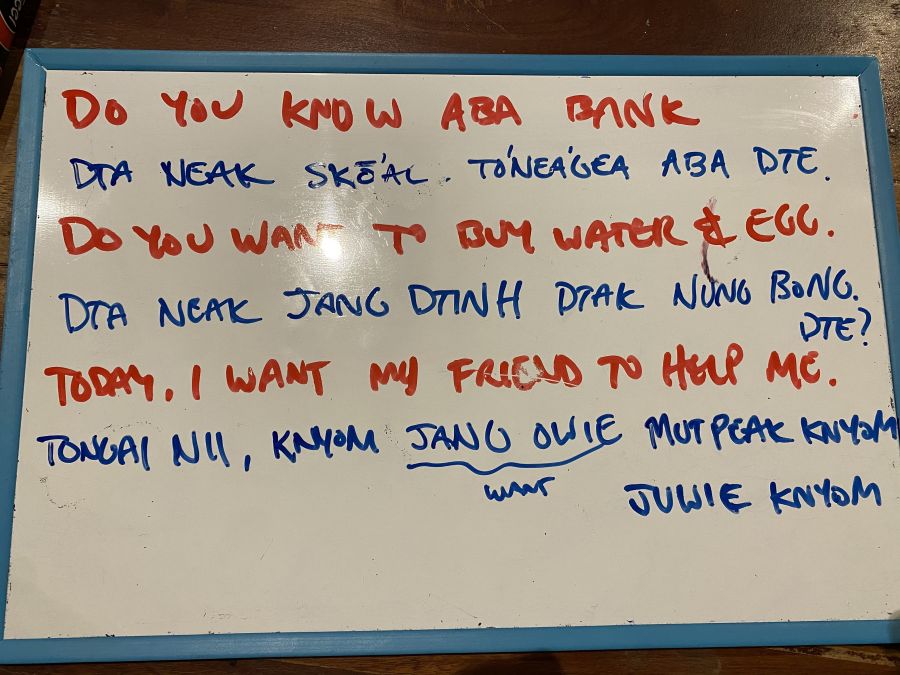 DO YOU KNOW ABA BANK
DTA NEAK SKĒ'AL. TO'NEA'GEA ABA DTE.
DO YOU WANT TO BUY WATER & EGG.
DTA NEAK JANG DTINH DTAK NUNG BONG.
DTE?
TODAY, I WANT MY FRIEND TO HELP ME.
TONGAI NII, KNYOM JANG OWIE MUTPEAK KNYOM
WANT
JUWIE KNYOM